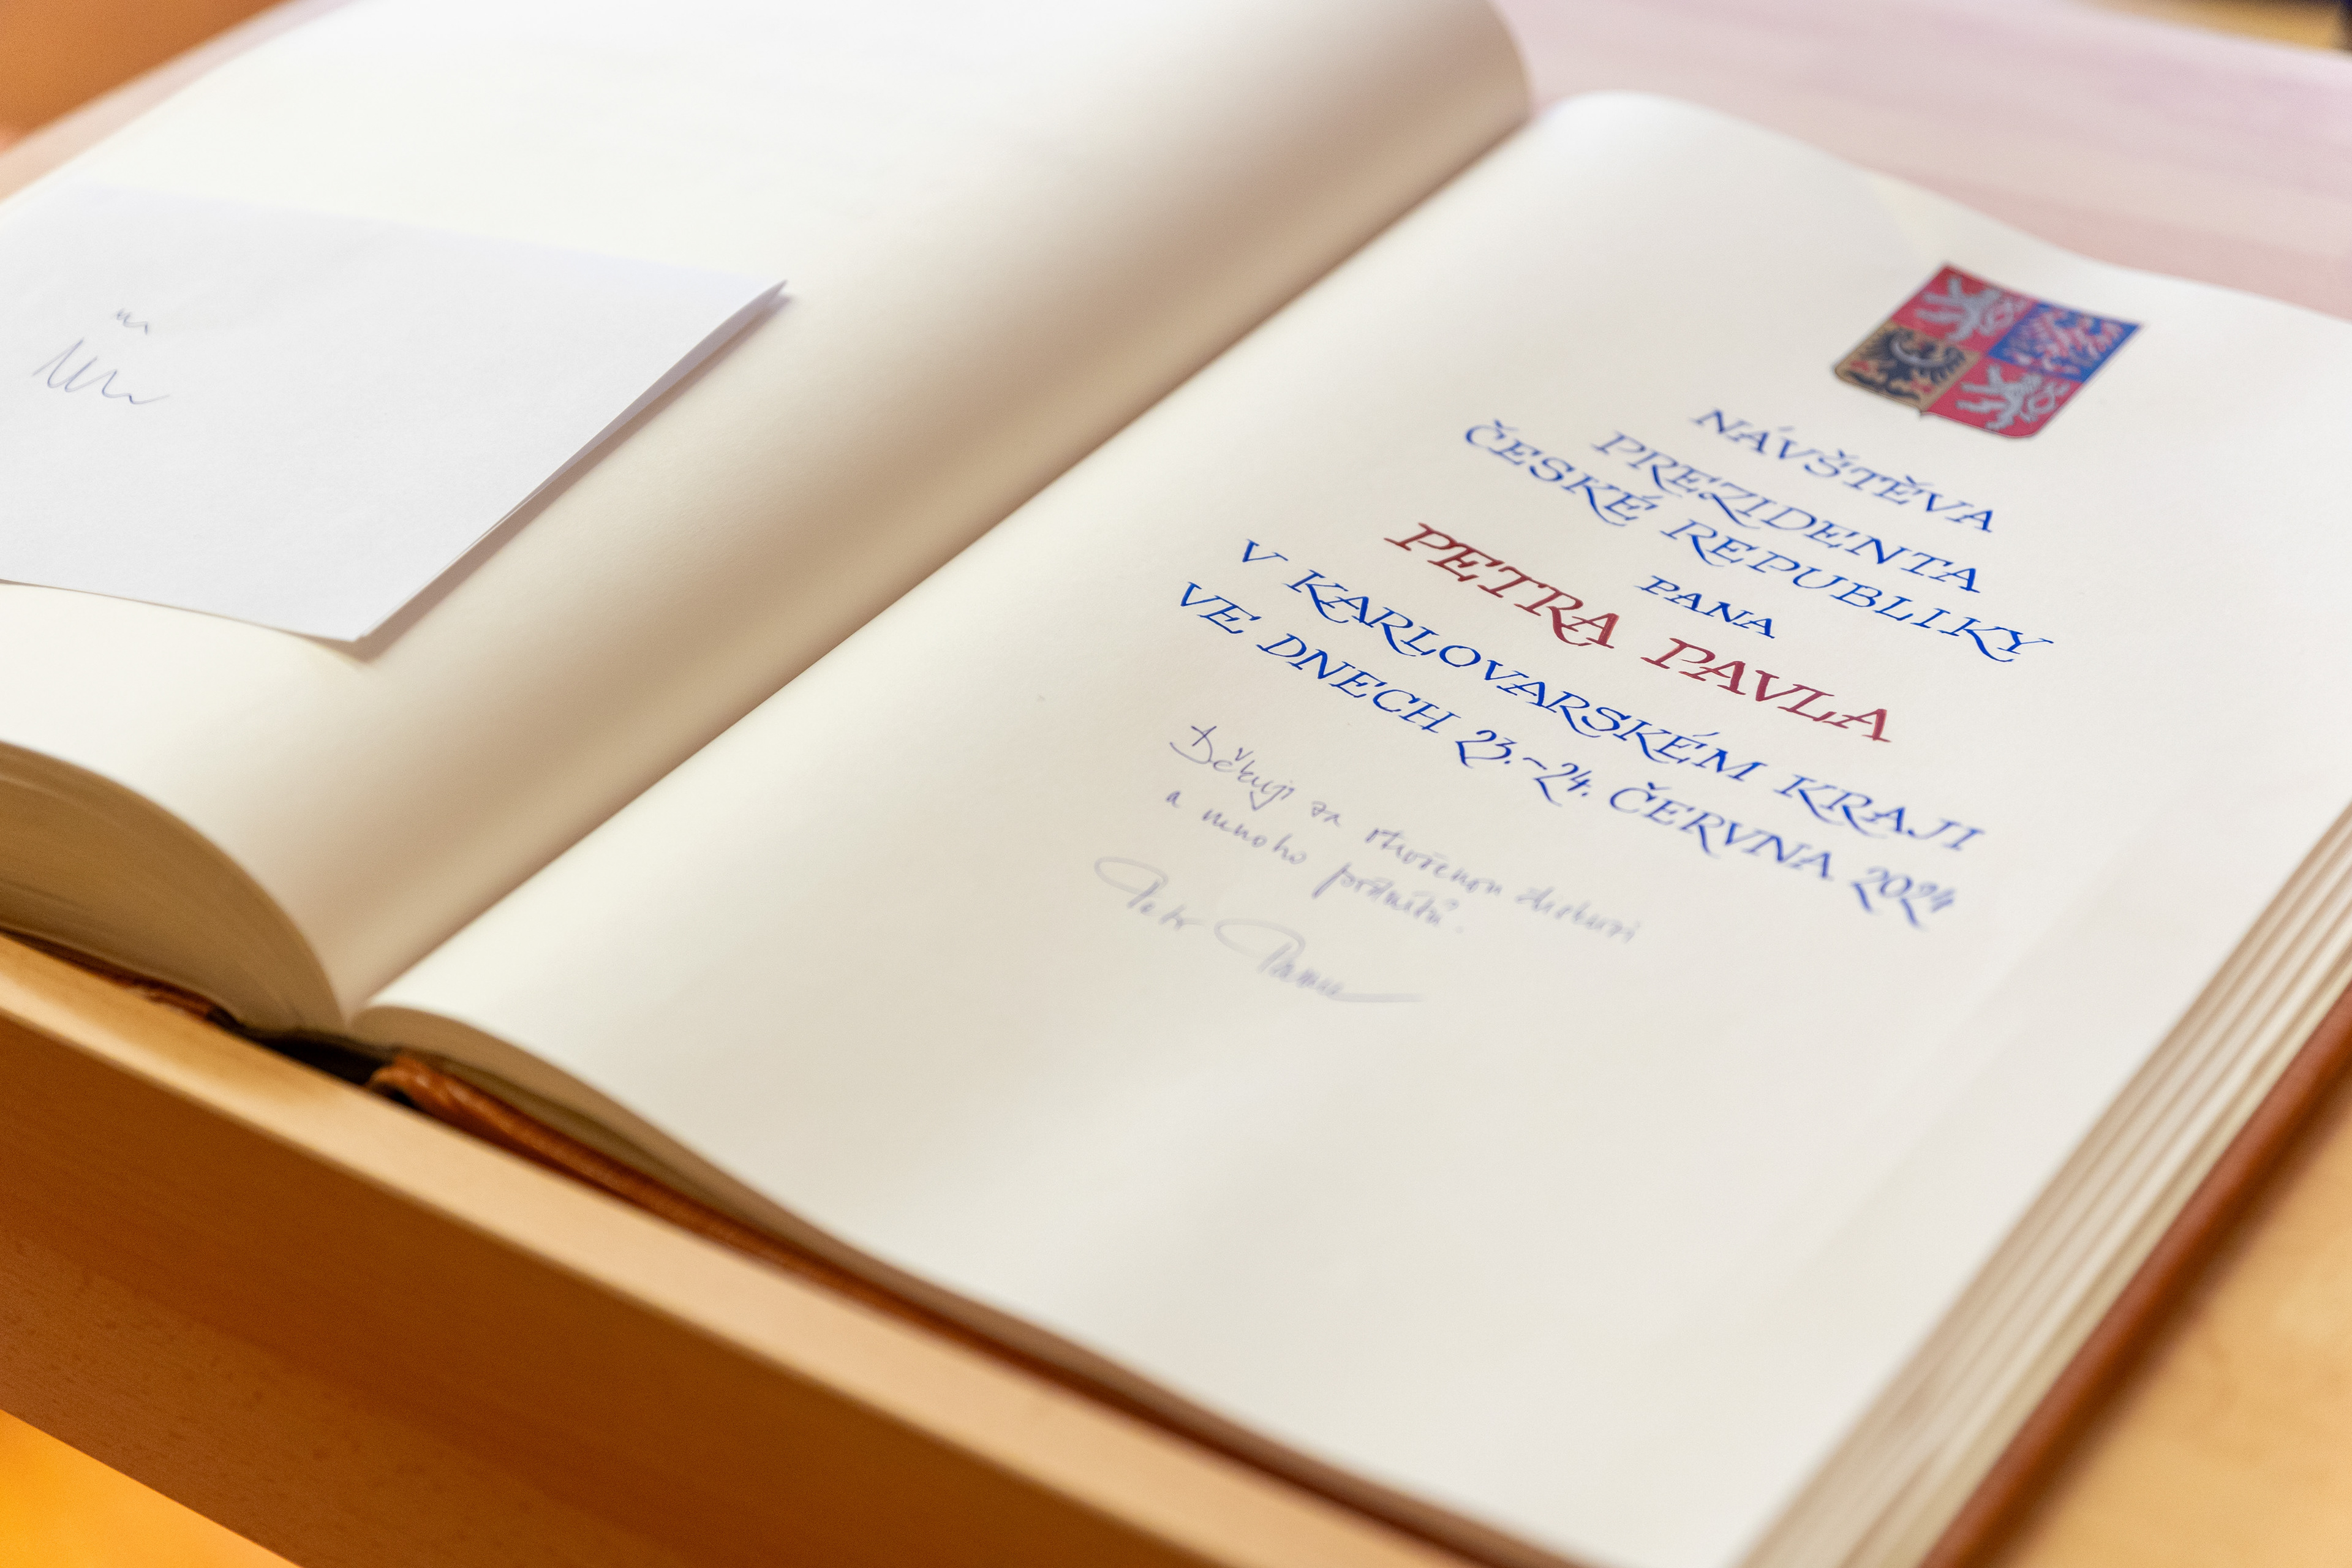 NÁVŠTĚVA
PREZIDENTA
ČESKÉ REPUBLIKY
PANA
PETRA PAVLA
V KARLOVARSKÉM KRAJI
VE DNECH 23.-24. ČERVNA 2024
Děkuji za otevřenou diskuzi
a mnoho podnětů.
Petr Pavel